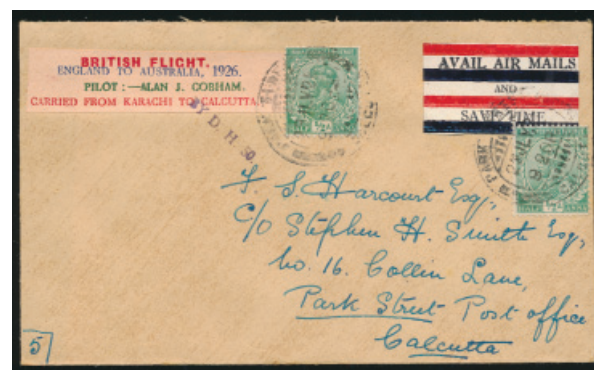 BRITISH FLIGHT.
ENGLAND TO AUSTRALIA, 1926.
PILOT:—ALAN J. COBHAM.
CARRIED FROM KARACHI TO CALCUTTA
BY D. H. 50.
AVAIL AIR MAILS
AND
SAVE TIME
PARK
F. S. Harcourt Esq.,
C/o Stephen H. Smith Esq,
No. 16. Collin Lane,
Park Street Post office
Calcutta
5